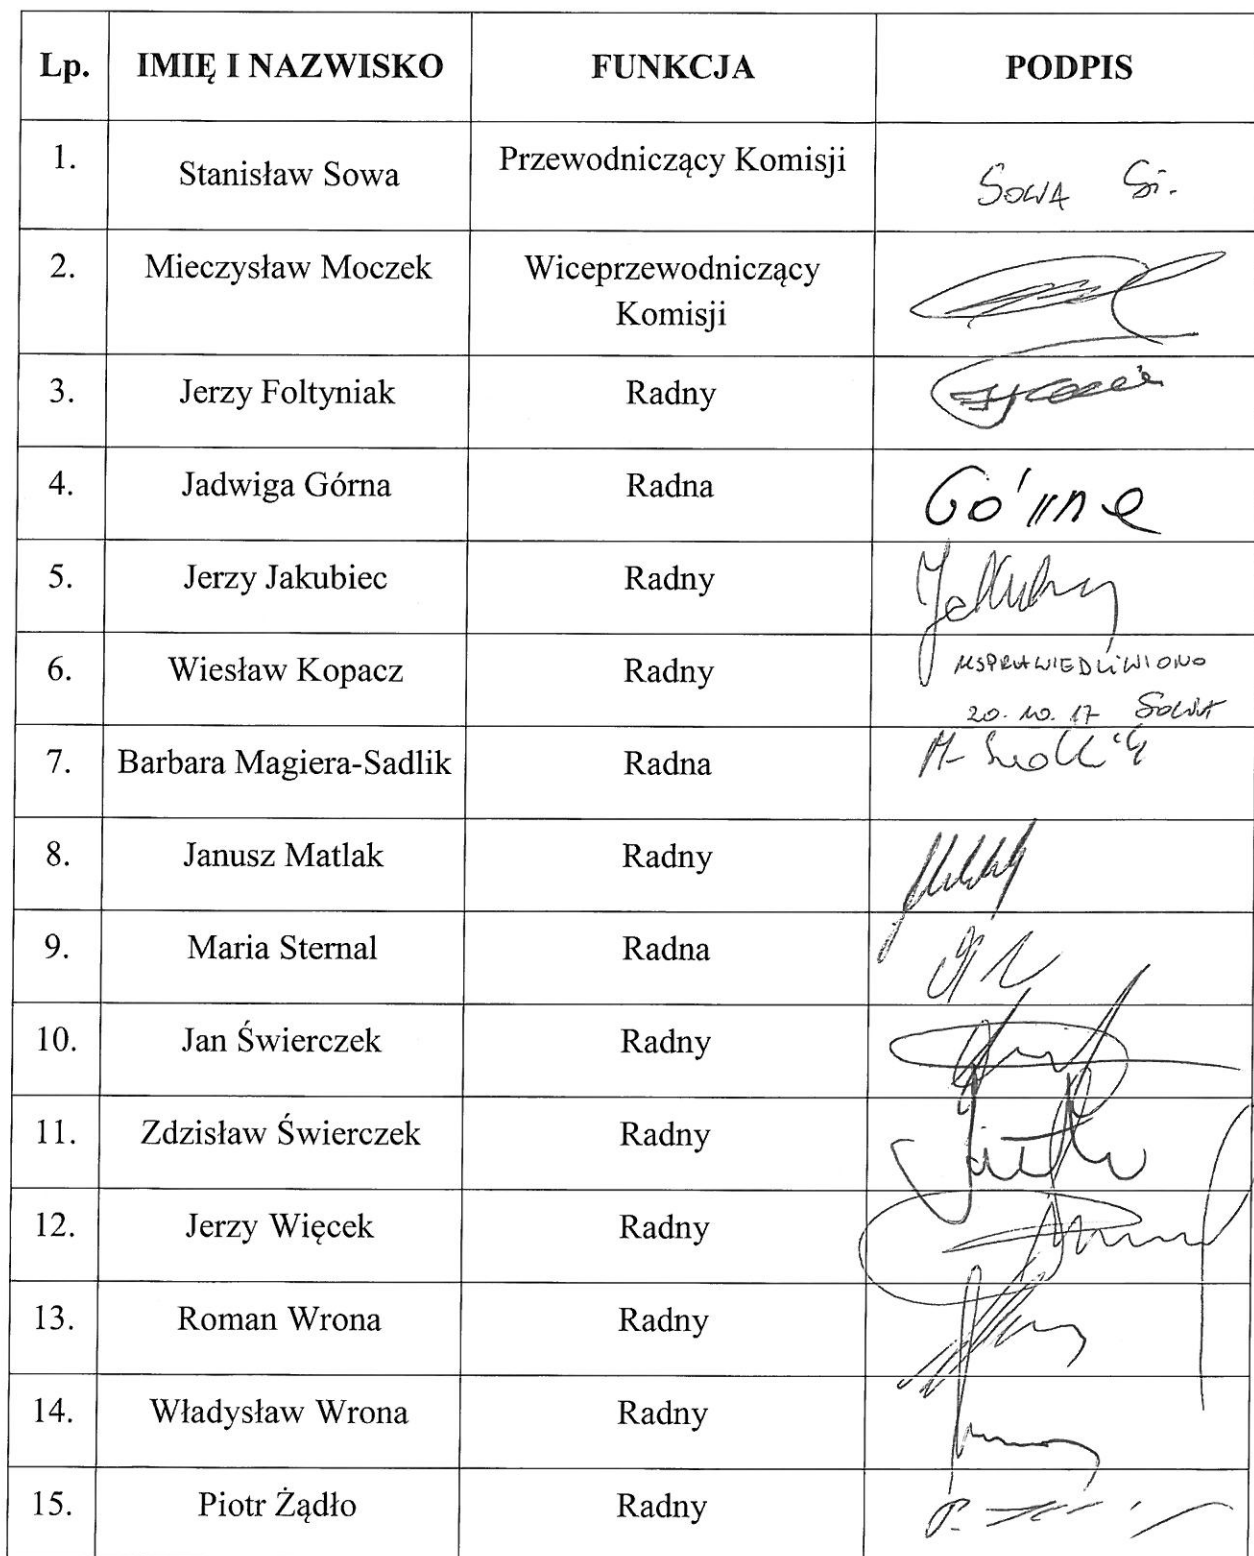 Lp. IMIĘ I NAZWISKO FUNKCJA PODPIS
1. Stanisław Sowa Przewodniczący Komisji SOWA St.
2. Mieczysław Moczek Wiceprzewodniczący
Komisji
3. Jerzy Foltyniak Radny
4. Jadwiga Górna Radna Górna
5. Jerzy Jakubiec Radny
6. Wiesław Kopacz Radny USPRAWIEDLIWIONO
20.10.17 SOWA
7. Barbara Magiera-Sadlik Radna
8. Janusz Matlak Radny
9. Maria Sternal Radna
10. Jan Świerczek Radny
11. Zdzisław Świerczek Radny
12. Jerzy Więcek Radny
13. Roman Wrona Radny
14. Władysław Wrona Radny
15. Piotr Żądło Radny